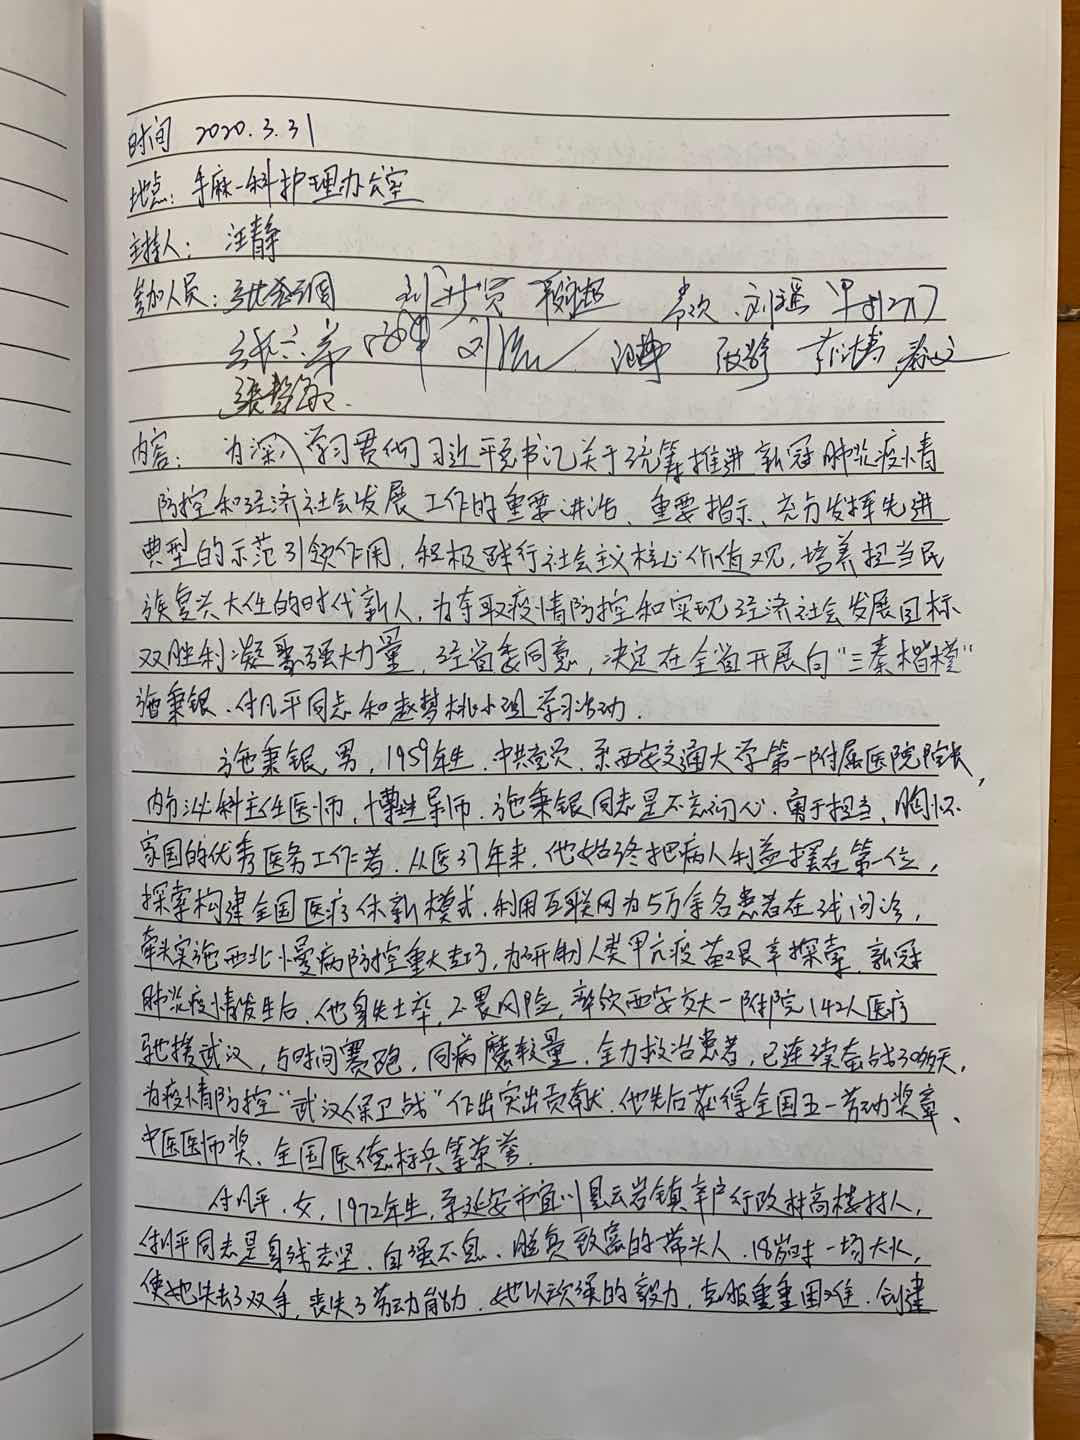 时间 2020.3.31
地点：手麻一科护理办公室
主持人：汪静
参加人员：
内容：为深入学习贯彻习近平总书记关于统筹推进新冠肺炎疫情
防控和经济社会发展工作的重要讲话、重要指示、充分发挥先进
典型的示范引领作用，积极践行社会主义核心价值观，培养担当民
族复兴大任的时代新人，为夺取疫情防控和实现经济社会发展目标
双胜利凝聚强大力量，经省委同意，决定在全省开展向“三秦楷模”
施秉银、付凡平同志和赵梦桃小组学习活动．
施秉银，男，1959年生，中共党员，系西安交通大学第一附属医院院长，
内分泌科主任医师，博士生导师．施秉银同志是不忘初心、勇于担当、胸怀
家国的优秀医务工作者．从医37年来，他始终把病人利益摆在第一位，
探索构建全国医疗体新模式．利用互联网为5万余名患者在线问诊，
牵头实施西北慢病防控重大专项，为研制人类甲亢疫苗艰辛探索．新冠
肺炎疫情发生后，他身先士卒，不畏风险，率领西安交大一附院142人医疗
驰援武汉，与时间赛跑，同病魔较量．全力救治患者，已连续奋战30多天，
为疫情防控“武汉保卫战”作出突出贡献．他先后获得全国五一劳动奖章、
中医医师奖、全国医德标兵等荣誉．
付凡平，女，1972年生，系延安市宜川县云岩镇辛户行政村高楼村人，
付凡平同志是身残志坚、自强不息、脱贫致富的带头人．18岁时一场大火，
使她失去了双手，丧失了劳动能力．她以顽强的毅力，克服重重困难．创建